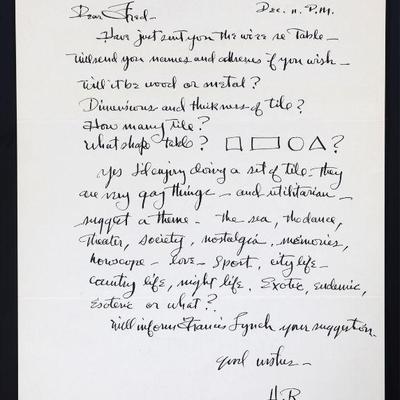 Dear Fred - Dec. 11. P.M.
Have just sent you the wire re table -
Will send you names and adresses if you wish -
Will it be wood or metal?
Dimensions and thickness of tile?
How many tile?
What shape table? □ ▭ ○ △ ?
Yes I'd enjoy doing a set of tile - they
are very gay things - and utilitarian -
suggest a theme - the sea, the dance,
theater, society, nostalgia, memories,
horoscope - love - sport, city life -
country life, night life. Exotic, endemic,
esoteric or what?
Will inform Francis Lynch your suggestion.
good wishes -
H.R.